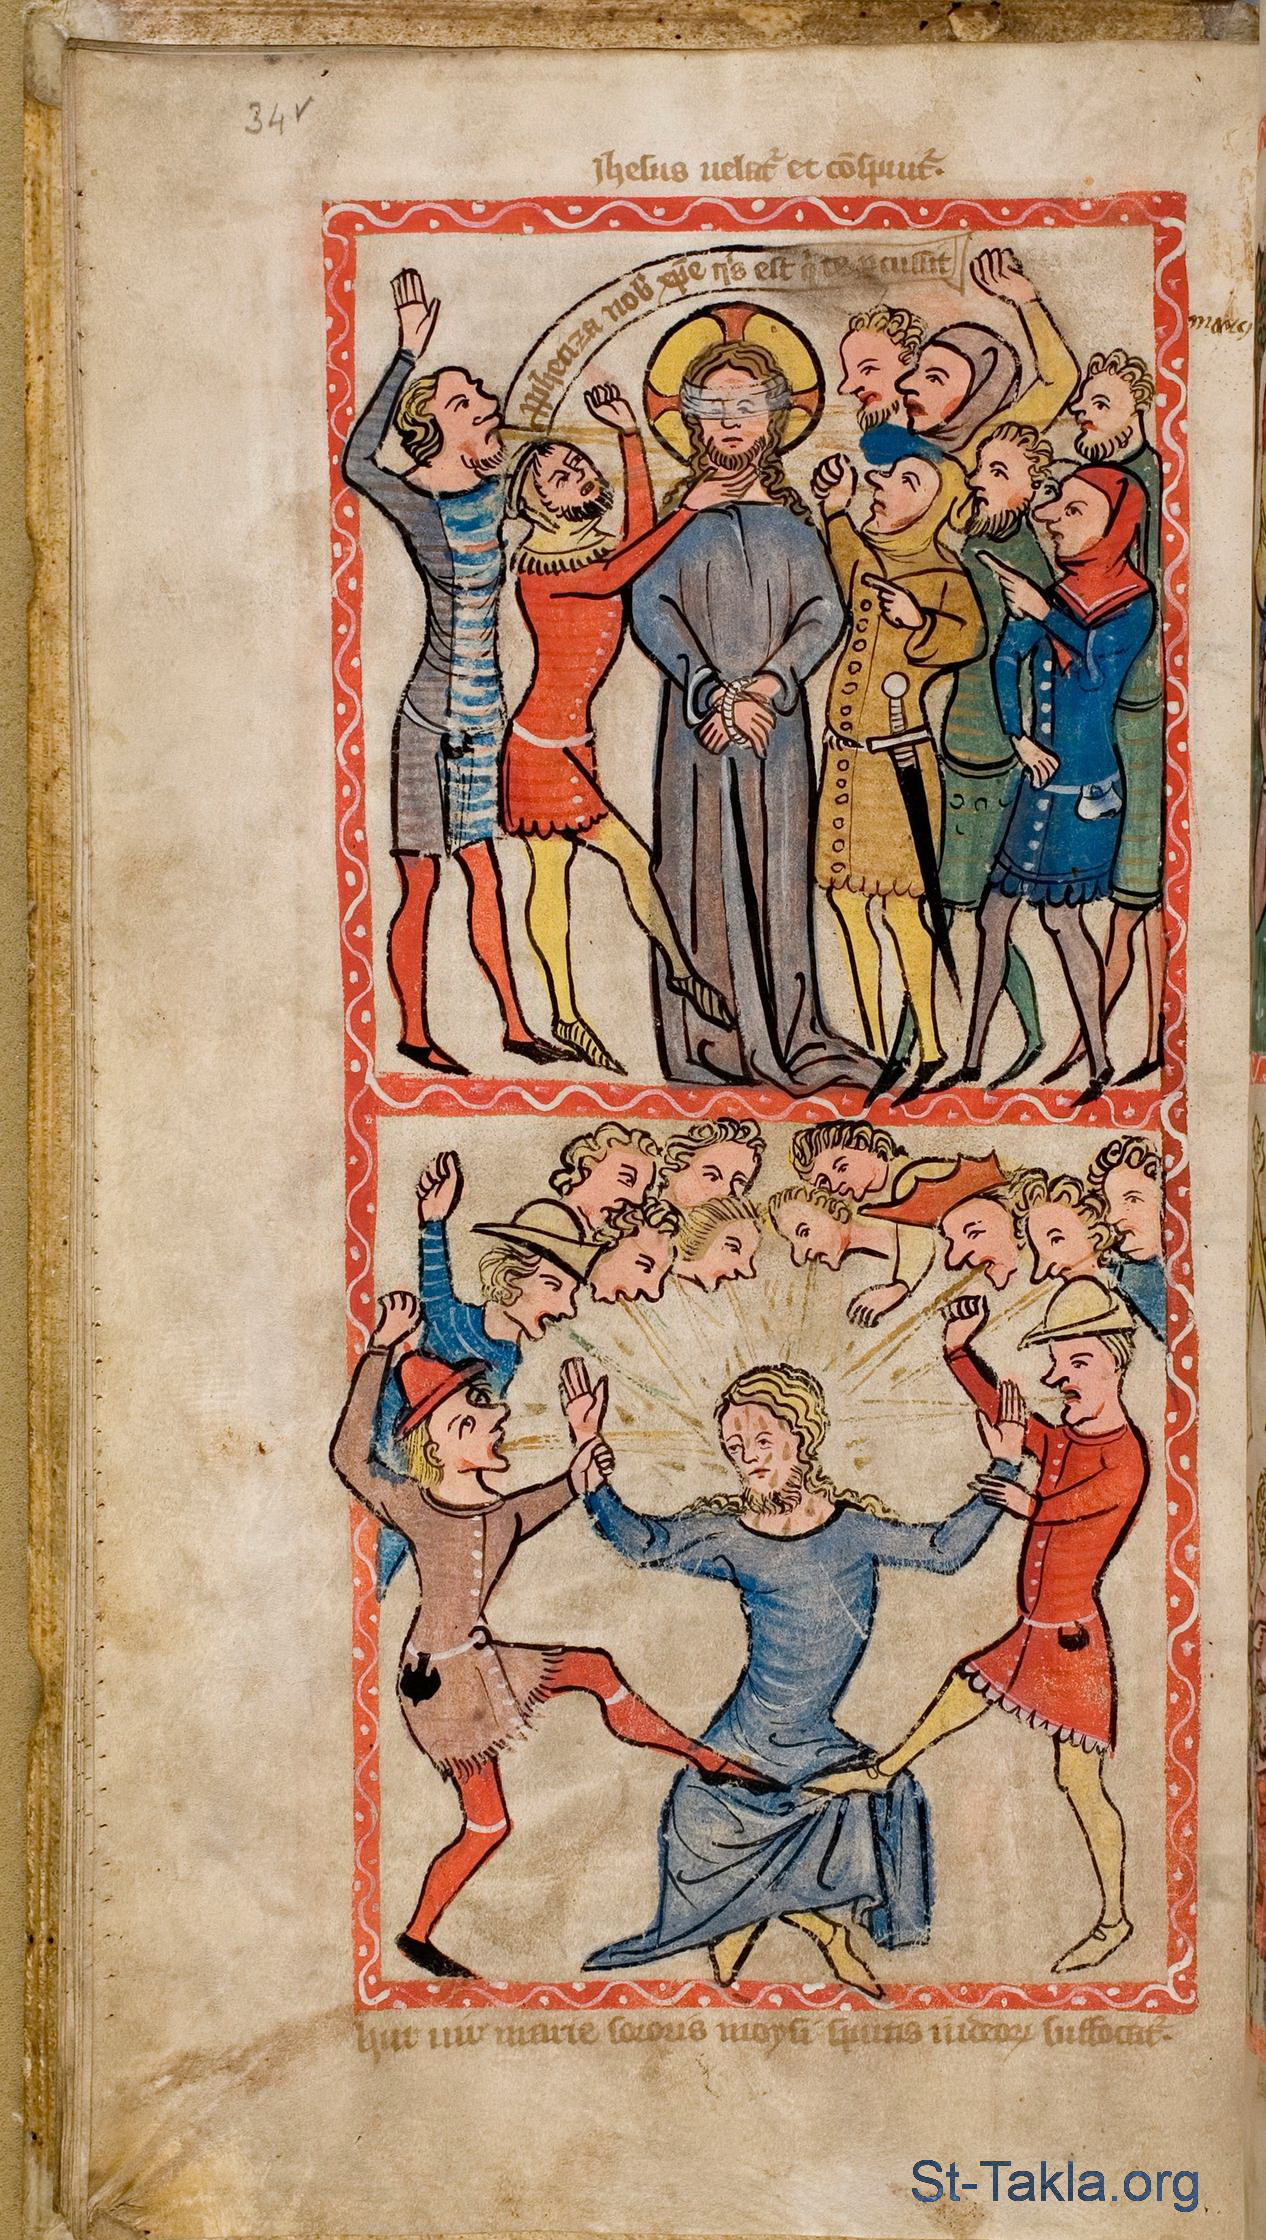 34v
Jhesus uelat᷑ et cōspuit᷑.
ꝓphetiza nob̛ xp̄e q̇s est q̇ te ꝑcussit
hur uir marie sororis moysi sputis iudeoꝝ suffocat᷑.
St-Takla.org